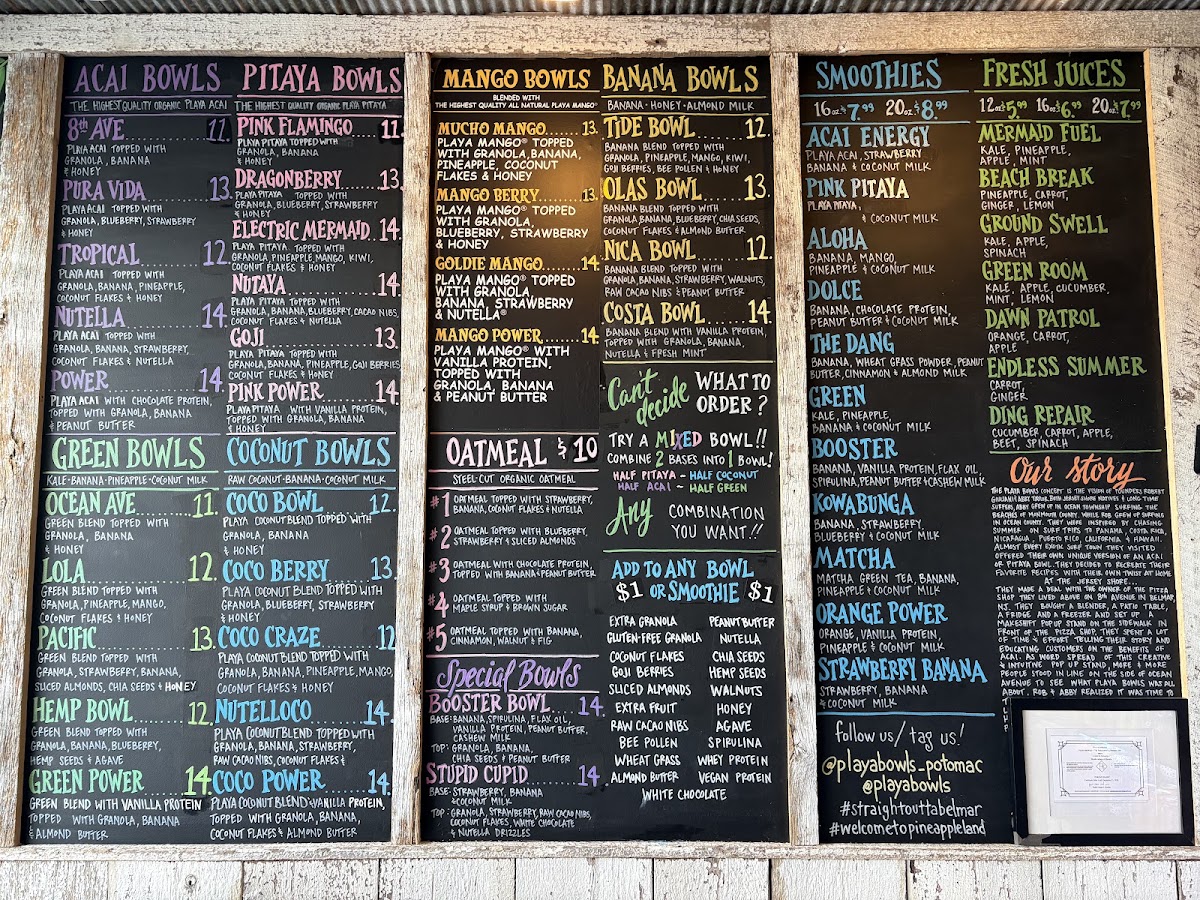 ACAI BOWLS
THE HIGHEST QUALITY ORGANIC PLAYA ACAI
8th AVE 11.
PLAYA ACAI TOPPED WITH
GRANOLA, BANANA
& HONEY
PURA VIDA 13.
PLAYA ACAI TOPPED WITH
GRANOLA, BLUEBERRY, STRAWBERRY
& HONEY
TROPICAL 12.
PLAYA ACAI TOPPED WITH
GRANOLA, BANANA, PINEAPPLE,
COCONUT FLAKES & HONEY
NUTELLA 14.
PLAYA ACAI TOPPED WITH
GRANOLA, BANANA, STRAWBERRY,
COCONUT FLAKES & NUTELLA
POWER 14.
PLAYA ACAI WITH CHOCOLATE PROTEIN,
TOPPED WITH GRANOLA, BANANA
& PEANUT BUTTER
GREEN BOWLS
KALE-BANANA-PINEAPPLE-COCONUT MILK
OCEAN AVE 11.
GREEN BLEND TOPPED WITH
GRANOLA, BANANA
& HONEY
LOLA 12.
GREEN BLEND TOPPED WITH
GRANOLA, PINEAPPLE, MANGO,
COCONUT FLAKES & HONEY
PACIFIC 13.
GREEN BLEND TOPPED WITH
GRANOLA, STRAWBERRY, BANANA,
SLICED ALMONDS, CHIA SEEDS & HONEY
HEMP BOWL 12.
GREEN BLEND TOPPED WITH
GRANOLA, BANANA, BLUEBERRY,
HEMP SEEDS & AGAVE
GREEN POWER 14.
GREEN BLEND WITH VANILLA PROTEIN
TOPPED WITH GRANOLA, BANANA
& ALMOND BUTTER
PITAYA BOWLS
THE HIGHEST QUALITY ORGANIC PLAYA PITAYA
PINK FLAMINGO 11.
PLAYA PITAYA TOPPED WITH
GRANOLA, BANANA
& HONEY
DRAGONBERRY 13.
PLAYA PITAYA TOPPED WITH
GRANOLA, BLUEBERRY, STRAWBERRY
& HONEY
ELECTRIC MERMAID 14.
PLAYA PITAYA TOPPED WITH
GRANOLA, PINEAPPLE, MANGO, KIWI,
COCONUT FLAKES & HONEY
NUTAYA 14.
PLAYA PITAYA TOPPED WITH
GRANOLA, BANANA, BLUEBERRY, CACAO NIBS,
COCONUT FLAKES & NUTELLA
GOJI 13.
PLAYA PITAYA TOPPED WITH
GRANOLA, BANANA, PINEAPPLE, GOJI BERRIES
COCONUT FLAKES & HONEY
PINK POWER 14.
PLAYA PITAYA WITH VANILLA PROTEIN,
TOPPED WITH GRANOLA, BANANA
& HONEY
COCONUT BOWLS
RAW COCONUT-BANANA-COCONUT MILK
COCO BOWL 12.
PLAYA COCONUT BLEND TOPPED WITH
GRANOLA, BANANA
& HONEY
COCO BERRY 13.
PLAYA COCONUT BLEND TOPPED WITH
GRANOLA, BLUEBERRY, STRAWBERRY
& HONEY
COCO CRAZE 12
PLAYA COCONUT BLEND TOPPED WITH
GRANOLA, BANANA, PINEAPPLE, MANGO,
COCONUT FLAKES & HONEY
NUTELLOCO 14.
PLAYA COCONUT BLEND TOPPED WITH
GRANOLA, BANANA, STRAWBERRY,
RAW CACAO NIBS, COCONUT FLAKES &
COCO POWER 14.
PLAYA COCONUT BLEND & VANILLA PROTEIN,
TOPPED WITH GRANOLA, BANANA,
COCONUT FLAKES & ALMOND BUTTER
MANGO BOWLS
BLENDED WITH
THE HIGHEST QUALITY ALL NATURAL PLAYA MANGO®
MUCHO MANGO 13.
PLAYA MANGO® TOPPED
WITH GRANOLA, BANANA,
PINEAPPLE, COCONUT
FLAKES & HONEY
MANGO BERRY 13.
PLAYA MANGO® TOPPED
WITH GRANOLA,
BLUEBERRY, STRAWBERRY
& HONEY
GOLDIE MANGO 14.
PLAYA MANGO® TOPPED
WITH GRANOLA
BANANA, STRAWBERRY
& NUTELLA®
MANGO POWER 14.
PLAYA MANGO® WITH
VANILLA PROTEIN,
TOPPED WITH
GRANOLA, BANANA
& PEANUT BUTTER
OATMEAL $10
STEEL CUT ORGANIC OATMEAL
#1 OATMEAL TOPPED WITH STRAWBERRY,
BANANA, COCONUT FLAKES & NUTELLA
#2 OATMEAL TOPPED WITH BLUEBERRY,
STRAWBERRY & SLICED ALMONDS
#3 OATMEAL WITH CHOCOLATE PROTEIN,
TOPPED WITH BANANA & PEANUT BUTTER
#4 OATMEAL TOPPED WITH
MAPLE SYRUP & BROWN SUGAR
#5 OATMEAL TOPPED WITH BANANA,
CINNAMON, WALNUT & FIG
Special Bowls
BOOSTER BOWL 14.
BASE: BANANA, SPIRULINA, FLAX OIL,
VANILLA PROTEIN, PEANUT BUTTER,
CASHEW MILK
TOP: GRANOLA, BANANA,
CHIA SEEDS & PEANUT BUTTER
STUPID CUPID 14
BASE: STRAWBERRY, BANANA
& COCONUT MILK
TOP: GRANOLA, STRAWBERRY, RAW CACAO NIBS,
COCONUT FLAKES, WHITE CHOCOLATE
& NUTELLA DRIZZLES
BANANA BOWLS
BANANA-HONEY-ALMOND MILK
TIDE BOWL 12.
BANANA BLEND TOPPED WITH
GRANOLA, PINEAPPLE, MANGO, KIWI,
GOJI BERRIES, BEE POLLEN & HONEY
OLAS BOWL 13.
BANANA BLEND TOPPED WITH
GRANOLA BANANA, BLUEBERRY, CHIA SEEDS,
COCONUT FLAKES & ALMOND BUTTER
NICA BOWL 12.
BANANA BLEND TOPPED WITH
GRANOLA, BANANA, STRAWBERRY, WALNUTS,
RAW CACAO NIBS & PEANUT BUTTER
COSTA BOWL 14.
BANANA BLEND WITH VANILLA PROTEIN,
TOPPED WITH GRANOLA, BANANA,
NUTELLA & FRESH MINT
Can't decide WHAT TO
ORDER?
TRY A MIXED BOWL!!
COMBINE 2 BASES INTO 1 BOWL!
HALF PITAYA ~ HALF COCONUT
HALF ACAI ~ HALF GREEN
Any COMBINATION
YOU WANT!!
ADD TO ANY BOWL
$1 OR SMOOTHIE $1
EXTRA GRANOLA PEANUT BUTTER
GLUTEN-FREE GRANOLA NUTELLA
COCONUT FLAKES CHIA SEEDS
GOJI BERRIES HEMP SEEDS
SLICED ALMONDS WALNUTS
EXTRA FRUIT HONEY
RAW CACAO NIBS AGAVE
BEE POLLEN SPIRULINA
WHEAT GRASS WHEY PROTEIN
ALMOND BUTTER VEGAN PROTEIN
WHITE CHOCOLATE
SMOOTHIES
16 oz. 7.99 20 oz. 8.99
ACAI ENERGY
PLAYA ACAI, STRAWBERRY
BANANA & COCONUT MILK
PINK PITAYA
PLAYA PITAYA,
& COCONUT MILK
ALOHA
BANANA, MANGO,
PINEAPPLE & COCONUT MILK
DOLCE
BANANA, CHOCOLATE PROTEIN,
PEANUT BUTTER & COCONUT MILK
THE DANG
BANANA, WHEAT GRASS POWDER, PEANUT
BUTTER, CINNAMON & ALMOND MILK
GREEN
KALE, PINEAPPLE,
BANANA & COCONUT MILK
BOOSTER
BANANA, VANILLA PROTEIN, FLAX OIL,
SPIRULINA, PEANUT BUTTER & CASHEW MILK
KOWABUNGA
BANANA, STRAWBERRY,
BLUEBERRY & COCONUT MILK
MATCHA
MATCHA GREEN TEA, BANANA,
PINEAPPLE & COCONUT MILK
ORANGE POWER
ORANGE, VANILLA PROTEIN,
PINEAPPLE & COCONUT MILK
STRAWBERRY BANANA
STRAWBERRY, BANANA
& COCONUT MILK
follow us/ tag us!
@playabowls_potomac
@playabowls
#straightouttabelmar
#welcometopineappleland
FRESH JUICES
12 oz 5.99 16 oz 6.99 20 oz 7.99
MERMAID FUEL
KALE, PINEAPPLE,
APPLE, MINT
BEACH BREAK
PINEAPPLE, CARROT,
GINGER, LEMON
GROUND SWELL
KALE, APPLE,
SPINACH
GREEN ROOM
KALE, APPLE, CUCUMBER,
MINT, LEMON
DAWN PATROL
ORANGE, CARROT,
APPLE
ENDLESS SUMMER
CARROT,
GINGER
DING REPAIR
CUCUMBER, CARROT, APPLE,
BEET, SPINACH
Our story
THE PLAYA BOWLS CONCEPT IS THE VISION OF FOUNDERS ROBERT
GIULIANI & ABBY TAYLOR, BOTH JERSEY SHORE NATIVES & LONG TIME
SURFERS, ABBY GREW UP IN OCEAN TOWNSHIP SURFING THE
BEACHES OF MONMOUTH COUNTY, WHILE ROB GREW UP SURFING
IN OCEAN COUNTY. THEY WERE INSPIRED BY CHASING
SUMMER ON SURF TRIPS TO PANAMA, COSTA RICA,
NICARAGUA, PUERTO RICO, CALIFORNIA & HAWAII.
ALMOST EVERY EXOTIC SURF TOWN THEY VISITED
OFFERED THEIR OWN UNIQUE VERSION OF AN ACAI
OR PITAYA BOWL. THEY DECIDED TO RECREATE THEIR
FAVORITE RECIPES WITH THEIR OWN TWIST AT HOME
AT THE JERSEY SHORE...
THEY MADE A DEAL WITH THE OWNER OF THE PIZZA
SHOP THEY LIVED ABOVE ON 8th AVENUE IN BELMAR,
NJ. THEY BOUGHT A BLENDER, A PATIO TABLE,
A FRIDGE AND A FREEZER AND SET UP A
MAKESHIFT POP UP STAND ON THE SIDEWALK IN
FRONT OF THE PIZZA SHOP, THEY SPENT A LOT
OF TIME & EFFORT TELLING THEIR STORY AND
EDUCATING CUSTOMERS ON THE BENEFITS OF
ACAI. AS WORD SPREAD OF THIS CREATIVE
& INTUITIVE POP UP STAND, MORE & MORE
PEOPLE STOOD IN LINE ON THE SIDE OF OCEAN
AVENUE TO SEE WHAT PLAYA BOWLS WAS ALL
ABOUT. ROB & ABBY REALIZED IT WAS TIME TO